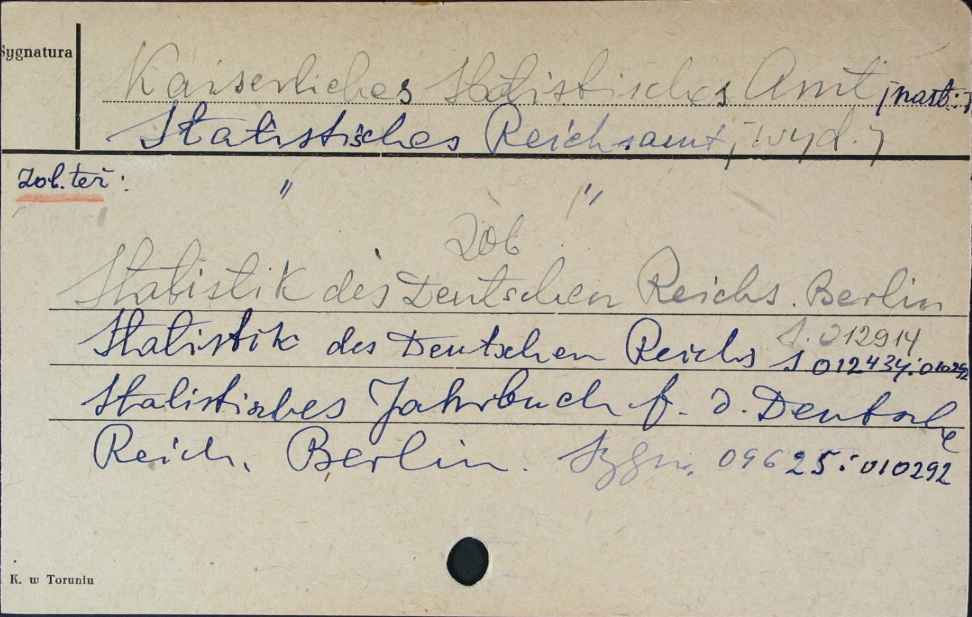 Sygnatura
Kaiserliches Statistisches Amt, nast.:
Statistisches Reichsamt, wyd.
Zob. też:
" "
Zob
Statistik des Deutschen Reichs. Berlin
S. 012914
Statistik des Deutschen Reichs S 012434; 010292
Statistisches Jahrbuch f. d. Deutsche
Reich. Berlin. Sygn. 09625; 010292
K. w Toruniu